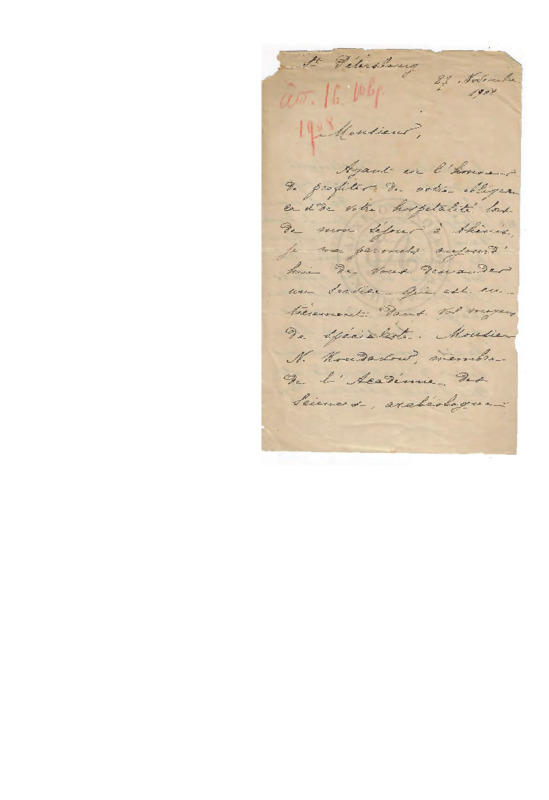 St Pétersbourg
23 Novembre
1908
απ. 16 10βρ
1908
Monsieur,
Ayant eu l'honneur
de profiter de votre obligean
ce et de votre hospitalité lors
de mon séjour à Athènes,
je me permets aujourd'
hui de vous demander
un service qui est en-
tièrement dans vos moyens
de spécialiste. Monsieur
N. Kondakow, membre
de l'Académie des
Sciences, archéologue